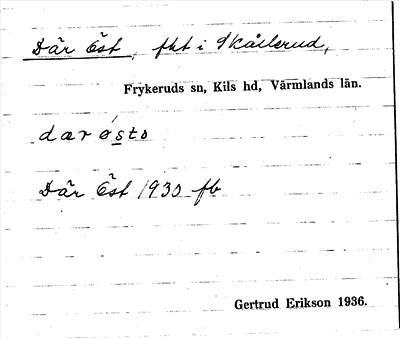 Där Öst, fht i Skållerud,
Frykeruds sn, Kils hd, Värmlands län.
dær østə
Där Öst 1930 fb
Gertrud Erikson 1936.